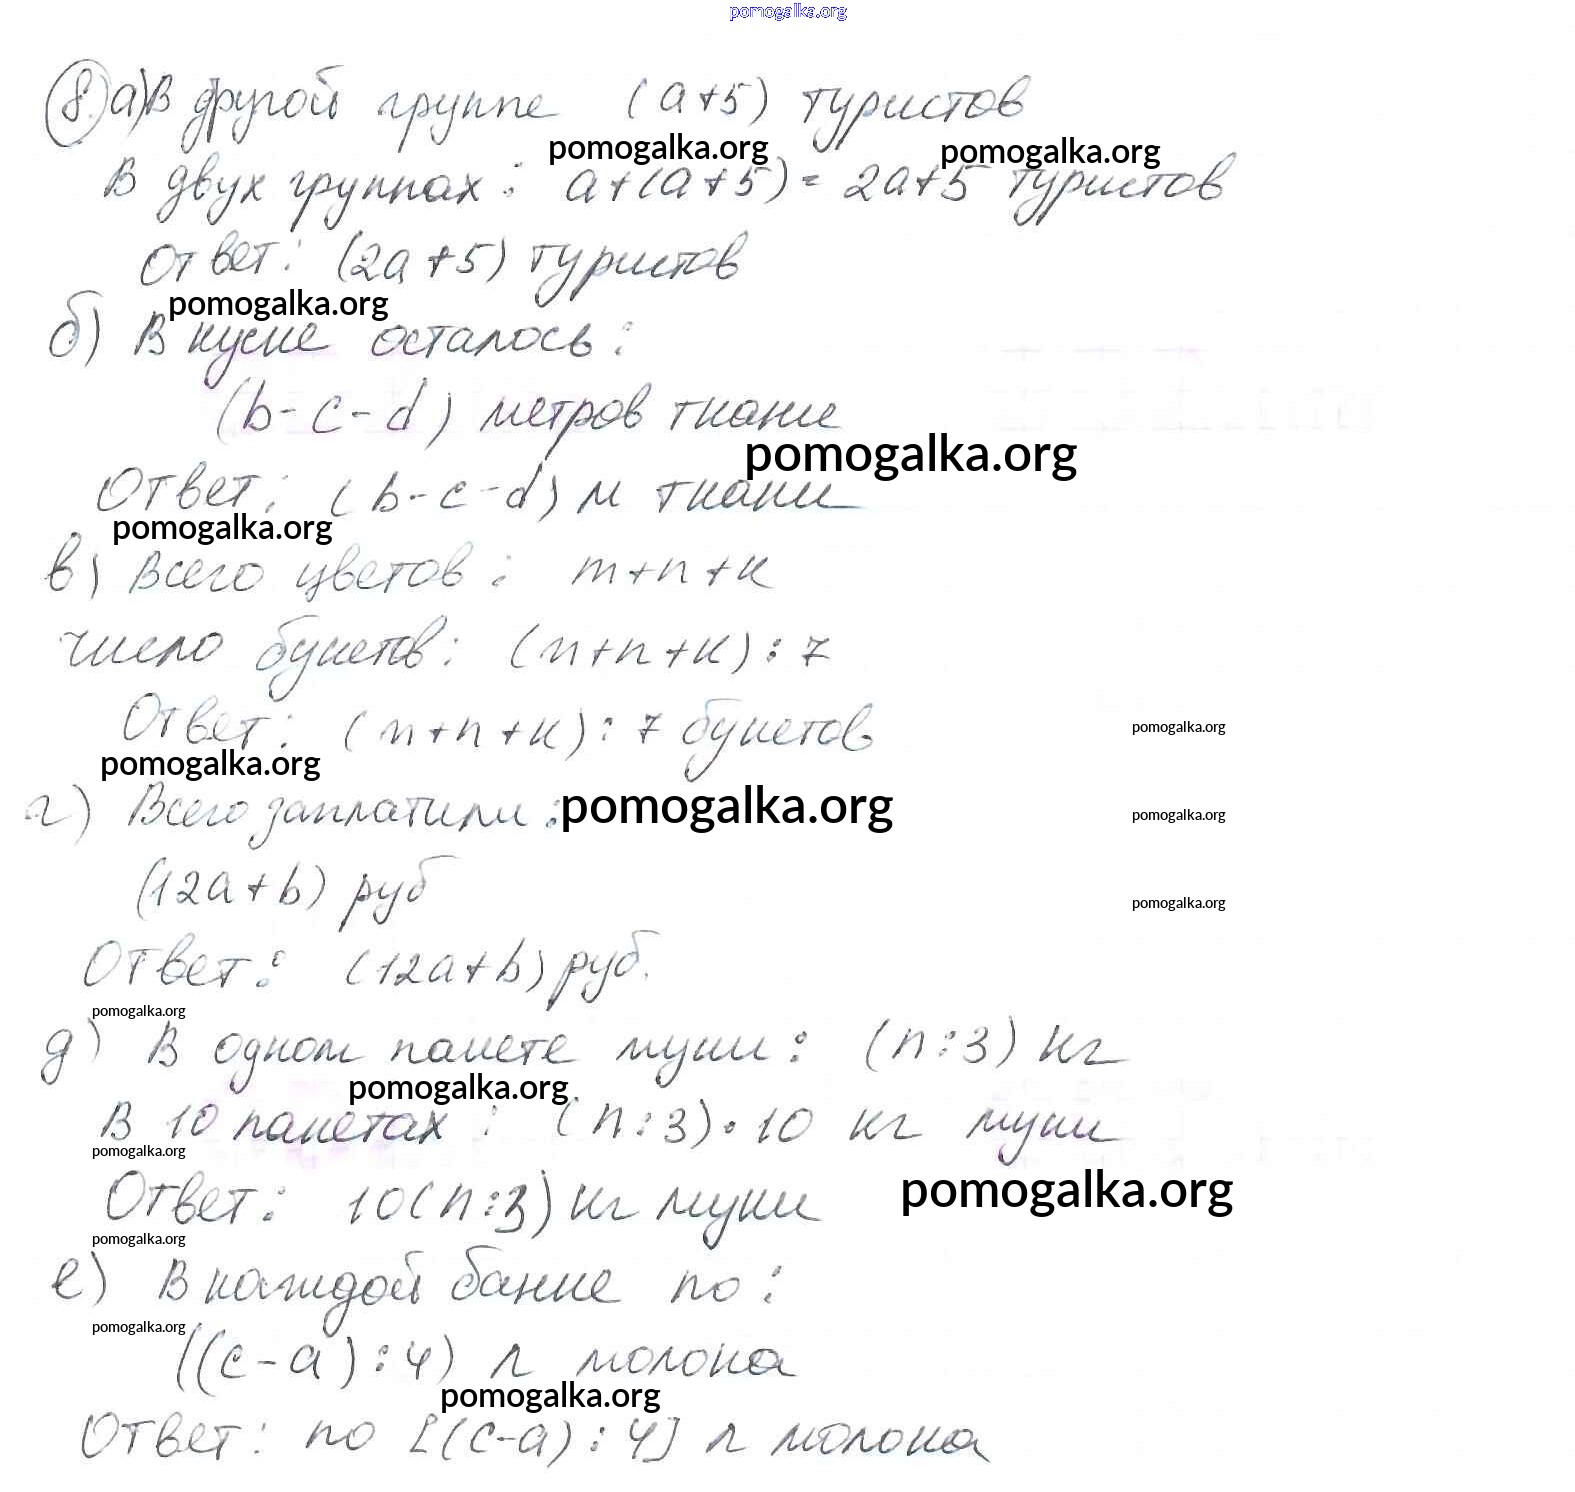 pomogalka.org
8. а) В другой группе (a+5) туристов
pomogalka.org pomogalka.org
В двух группах: a+(a+5)=2a+5 туристов
Ответ: (2a+5) туристов
pomogalka.org
б) В куске осталось:
(b-c-d) метров ткани
pomogalka.org
Ответ: (b-c-d) м ткани
pomogalka.org
в) Всего цветов: m+n+k
число букетов: (m+n+k):7
Ответ: (m+n+k):7 букетов
pomogalka.org
pomogalka.org
г) Всего заплатили:
pomogalka.org
pomogalka.org
(12a+b) руб
pomogalka.org
Ответ: (12a+b) руб.
pomogalka.org
д) В одном пакете муки: (n:3) кг
pomogalka.org
В 10 пакетах: (n:3)·10 кг муки
pomogalka.org
Ответ: 10(n:3) кг муки
pomogalka.org
pomogalka.org
е) В каждой банке по:
pomogalka.org
((c-a):4) л молока
pomogalka.org
Ответ: по [(c-a):4] л молока